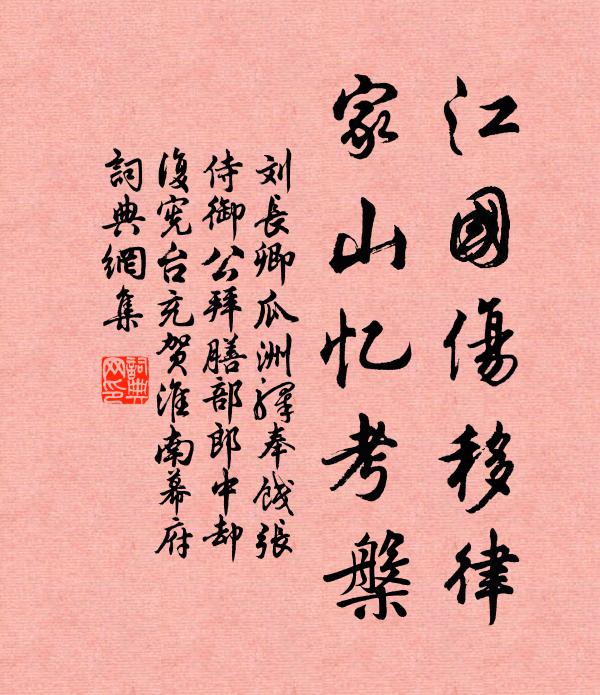 江國傷移律
家山忆考槃
刘長卿瓜洲驛奉餞張
侍御公拜膳部郎中却
復宪台充贺淮南幕府
詞典網集
詞典网印